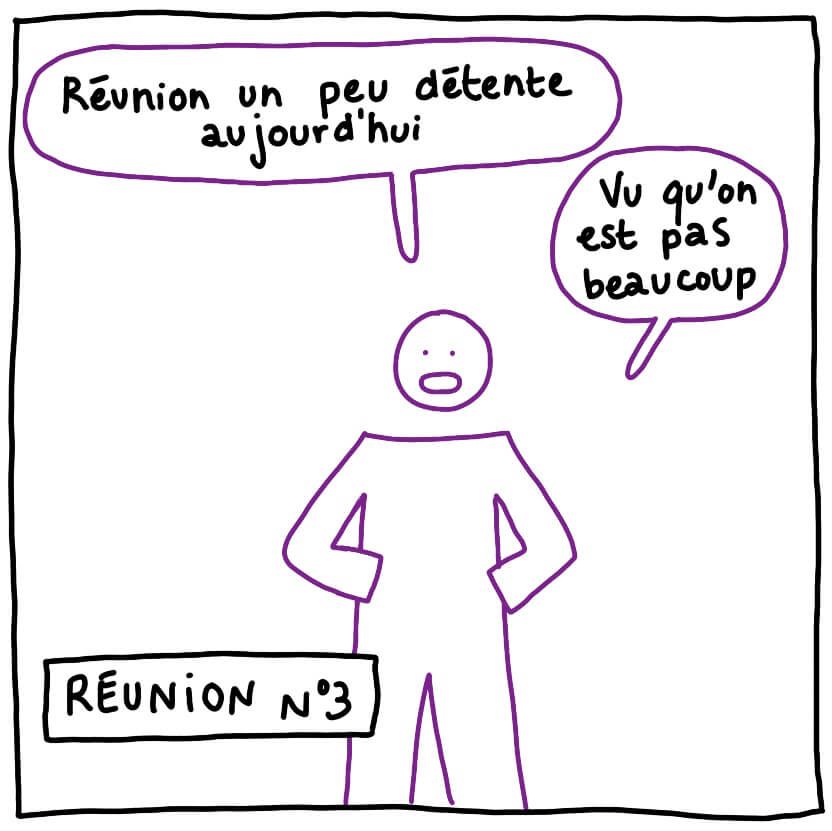 Réunion un peu détente
aujourd'hui
Vu qu'on
est pas
beaucoup
RÉUNION N°3